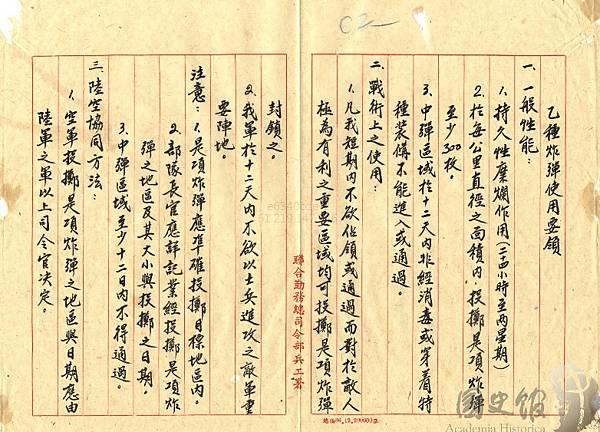 C2
乙種炸彈使用要領
一、一般性能：
1. 持久性糜爛作用(二十四小時至兩星期)
2. 於每公里直徑之面積內，投擲是項炸彈
至少300枚。
3. 中彈區域於十二天內非經消毒或穿着特
種裝備不能進入或通過。
二、戰術上之使用：
1. 凡我短期內不欲佔領或通過而對於敵人
極為有利之重要區域均可投擲是項炸彈
聯合勤務總司令部兵工署
封鎖之。
2. 我軍於十二天內不欲以士兵進攻之敵軍重
要陣地。
注意：1. 是項炸彈應準確投擲目標地區內。
2. 部隊長官應詳記業經投擲是項炸
彈之地區及其大小與投擲之日期。
3. 中彈區域至少十二日內不得通過。
三、陸空協同方法：
1. 空軍投擲是項炸彈之地區與日期應由
陸軍之軍以上司令官決定。
國史館
Academia Historica